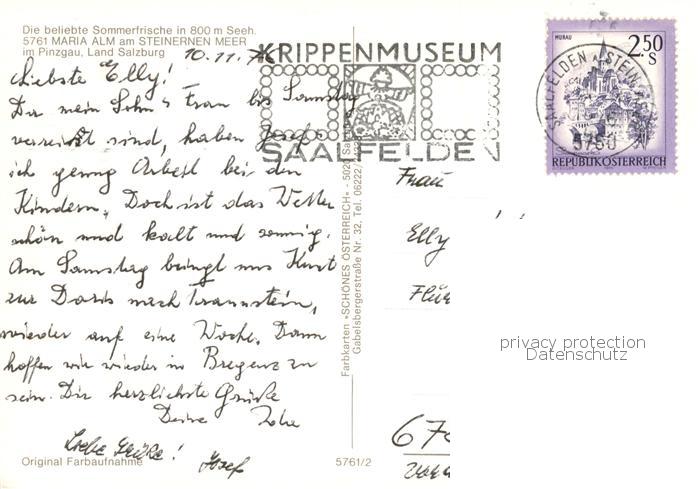 Die beliebte Sommerfrische in 800 m Seeh.
5761 MARIA ALM am STEINERNEN MEER
im Pinzgau, Land Salzburg
10.11.
Liebste Elly!
Da mein Sohn u Frau bis Samstag
verreist sind, haben Josef u
ich genug Arbeit bei den
Kindern. Doch ist das Wetter
schön und kalt und sonnig.
Am Samstag bringt uns Kurt
zur Doris nach Traunstein,
wieder auf eine Woche. Dann
hoffen wir wieder in Bregenz zu
sein. Dir herzlichste Grüße
Deine
Liebe Grüße! Josef
Original Farbaufnahme
5761/2
Farbkarten «SCHÖNES ÖSTERREICH» - 5020
Gabelsbergerstraße Nr. 32, Tel. 06222/
KRIPPENMUSEUM
SAALFELDEN
MURAU
2.50
S
REPUBLIK ÖSTERREICH
SAALFELDEN
5760
Frau
Elly
privacy protection
Datenschutz